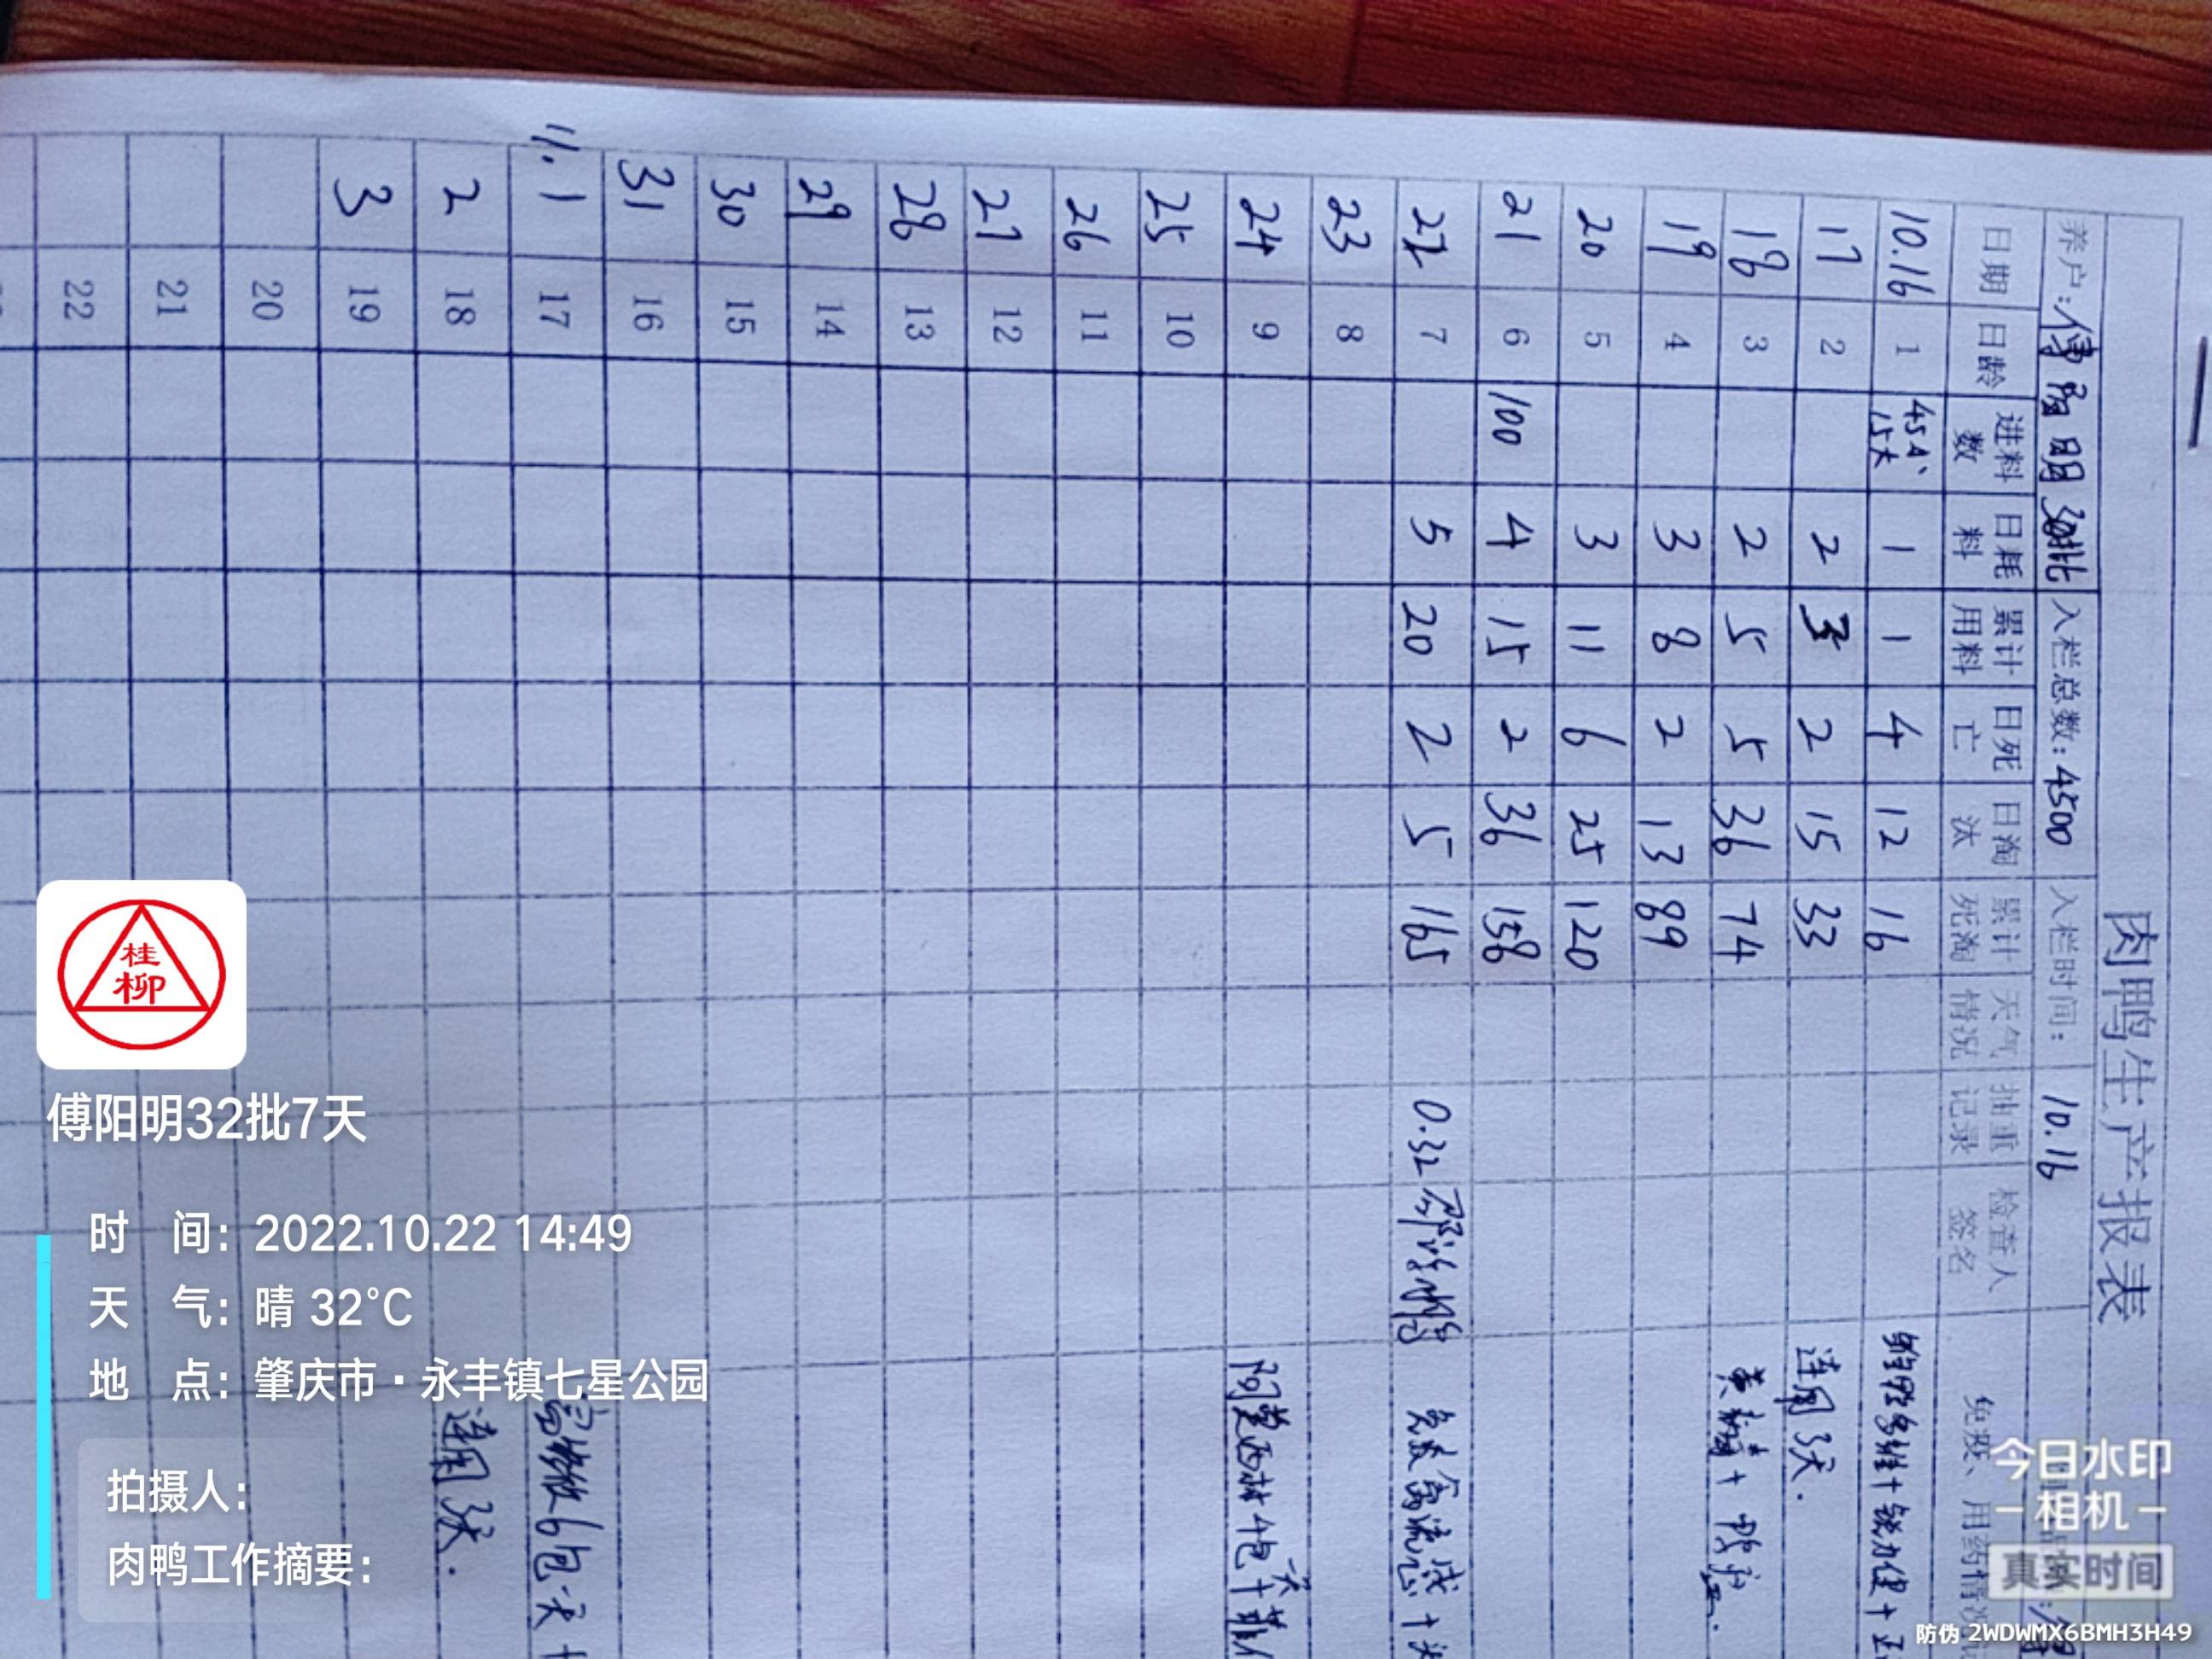 肉鸭生产报表
养户:傅阳明32批 入栏总数:4500 入栏时间: 10.16
日期 日龄 进料数 日耗料 累计用料 日死亡 日淘汰 累计死淘 天气情况 抽重记录 检查人签名 免疫、用药情况
10.16 1 45小 15大 1 1 4 12 16
17 2 2 3 2 15 33 连用3天.
18 3 2 5 5 36 74
19 4 3 8 2 13 89
20 5 3 11 6 25 120
21 6 100 4 15 2 36 158
22 7 5 20 2 5 165 0.32 免疫禽流感+
23 8
24 9 阿莫西林4包/天+
25 10
26 11
27 12
28 13
29 14
30 15
31 16
11.1 17 6包/天+
2 18 连用3天.
3 19
20
21
22
桂柳
傅阳明32批7天
时 间: 2022.10.22 14:49
天 气: 晴 32°C
地 点: 肇庆市·永丰镇七星公园
拍摄人:
肉鸭工作摘要:
今日水印
相机
真实时间
防伪 2WDWMX6BMH3H49